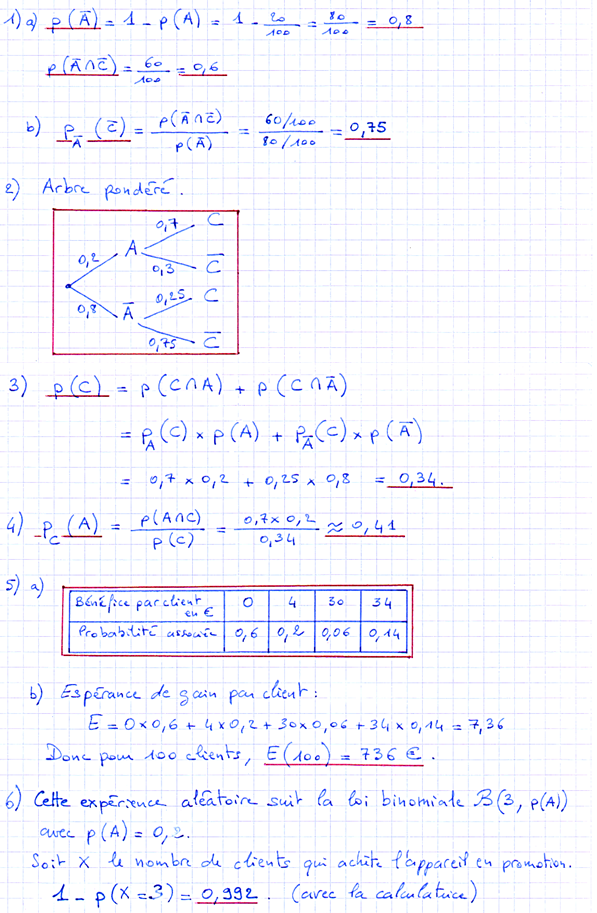 1) a) p(Ā) = 1 - p(A) = 1 - 20/100 = 80/100 = 0,8
p(Ā∩C̄) = 60/100 = 0,6
b) p_Ā(C̄) = p(Ā∩C̄)/p(Ā) = (60/100)/(80/100) = 0,75
2) Arbre pondéré.
0,7 C
0,2 A
0,3 C̄
0,8 Ā 0,25 C
0,75 C̄
3) p(C) = p(C∩A) + p(C∩Ā)
= p_A(C) × p(A) + p_Ā(C) × p(Ā)
= 0,7 × 0,2 + 0,25 × 0,8 = 0,34.
4) p_C(A) = p(A∩C)/p(C) = (0,7 × 0,2)/0,34 ≈ 0,41
5) a)
Bénéfice par client en € 0 4 30 34
Probabilité associée 0,6 0,2 0,06 0,14
b) Espérance de gain par client :
E = 0×0,6 + 4×0,2 + 30×0,06 + 34×0,14 = 7,36
Donc pour 100 clients, E(100) = 736 €.
6) Cette expérience aléatoire suit la loi binomiale B(3, p(A))
avec p(A) = 0,2.
Soit X le nombre de clients qui achète l'appareil en promotion.
1 - p(X=3) = 0,992. (avec la calculatrice)